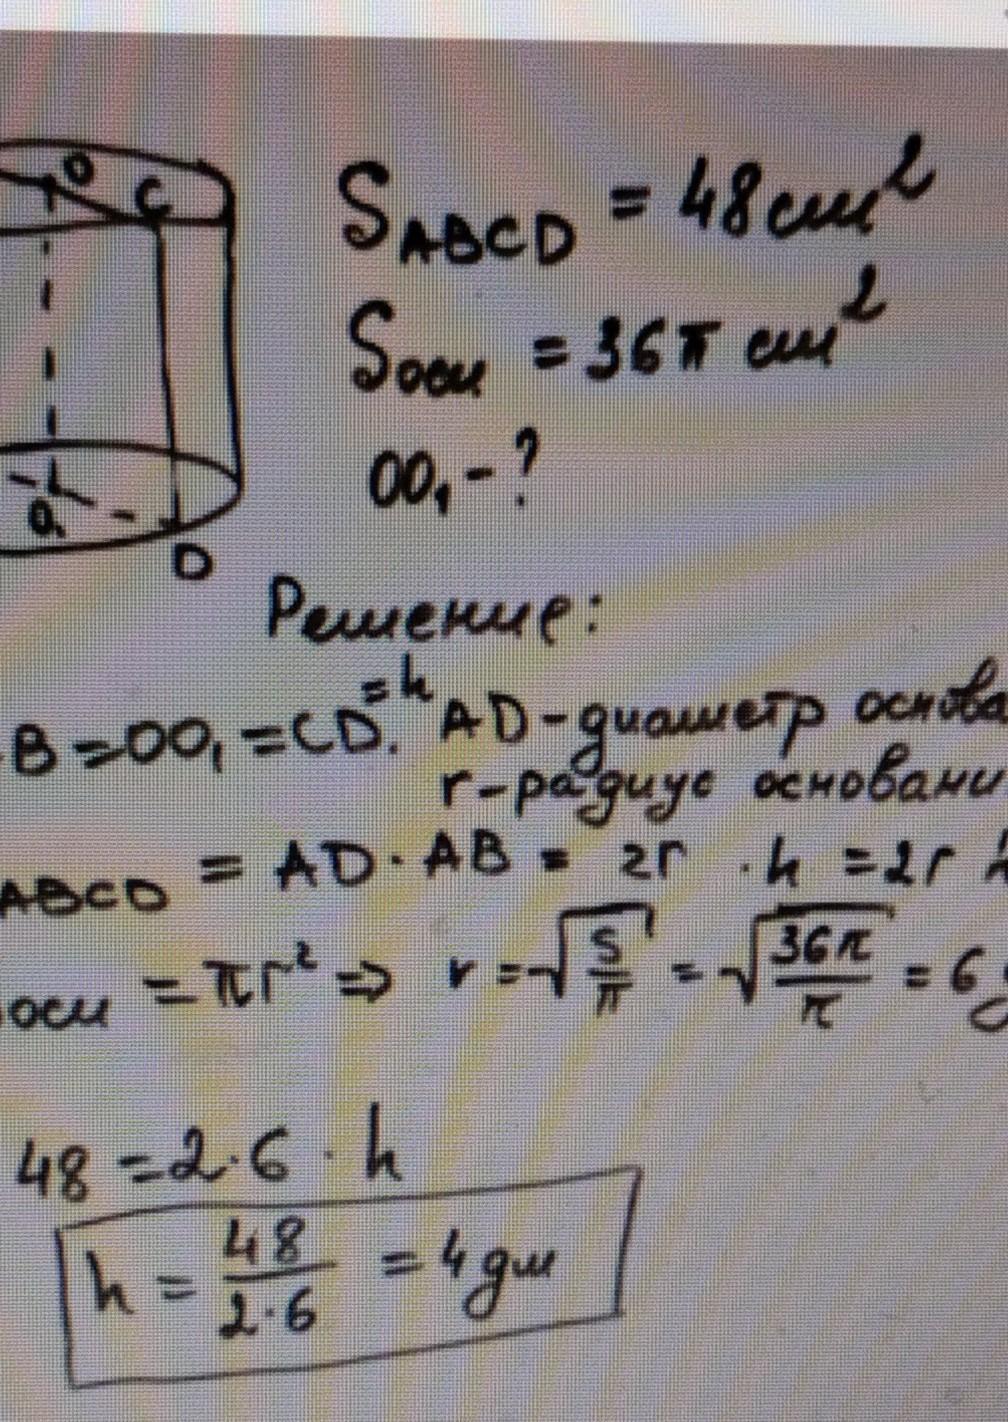 O C
S_ABCD = 48 см²
S_осн = 36π см²
OO₁ - ?
O₁
D
Решение:
B = OO₁ = CD = h. AD - диаметр основа
r - радиус основани
ABCD = AD · AB = 2r · h = 2r h
осн = πr² ⇒ r = √(S/π) = √(36π/π) = 6 д
48 = 2·6 · h
h = 48/(2·6) = 4 дм